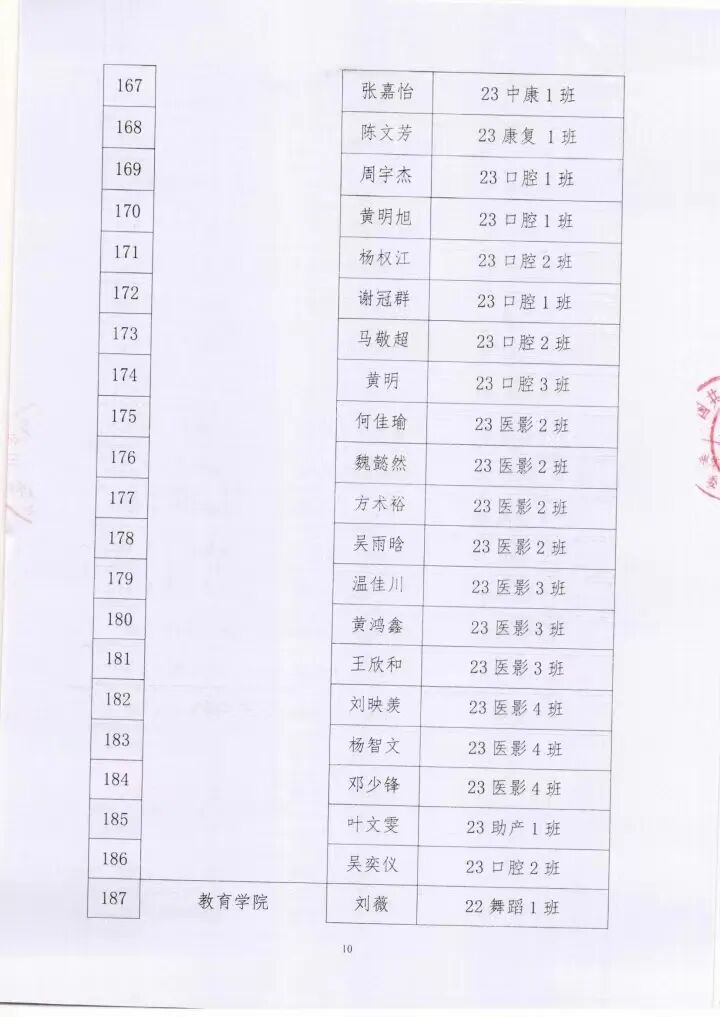 167 张嘉怡 23 中康 1 班
168 陈文芳 23 康复 1 班
169 周宇杰 23 口腔 1 班
170 黄明旭 23 口腔 1 班
171 杨权江 23 口腔 2 班
172 谢冠群 23 口腔 1 班
173 马敬超 23 口腔 2 班
174 黄明 23 口腔 3 班
175 何佳瑜 23 医影 2 班
176 魏懿然 23 医影 2 班
177 方术裕 23 医影 2 班
178 吴雨晗 23 医影 2 班
179 温佳川 23 医影 3 班
180 黄鸿鑫 23 医影 3 班
181 王欣和 23 医影 3 班
182 刘映羡 23 医影 4 班
183 杨智文 23 医影 4 班
184 邓少锋 23 医影 4 班
185 叶文雯 23 助产 1 班
186 吴奕仪 23 口腔 2 班
187 教育学院 刘薇 22 舞蹈 1 班
10